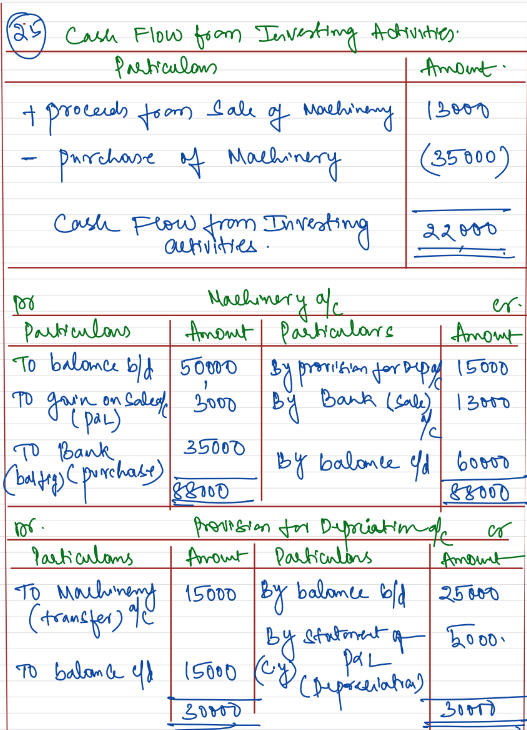 25 Cash Flow from Investing Activities.
Particulars Amount.
+ proceeds from Sale of Machinery 13000
- purchase of Machinery (35000)
Cash Flow from Investing 22000
activities.
Dr Machinery a/c cr.
Particulars Amount Particulars Amount
To balance b/d 50000 By provision for Dep a/c 15000
To gain on Sale a/c 3000 By Bank (sale) 13000
(P&L) a/c
To Bank 35000
(bal fig) (purchase) By balance c/d 60000
88000 88000
Dr. Provision for Depriation a/c cr
Particulars Amount Particulars Amount
To Machinery 15000 By balance b/d 25000
(transfer) a/c
By statement of 5000.
To balance c/d 15000 (cy) P&L
(Depreciation)
30000 30000